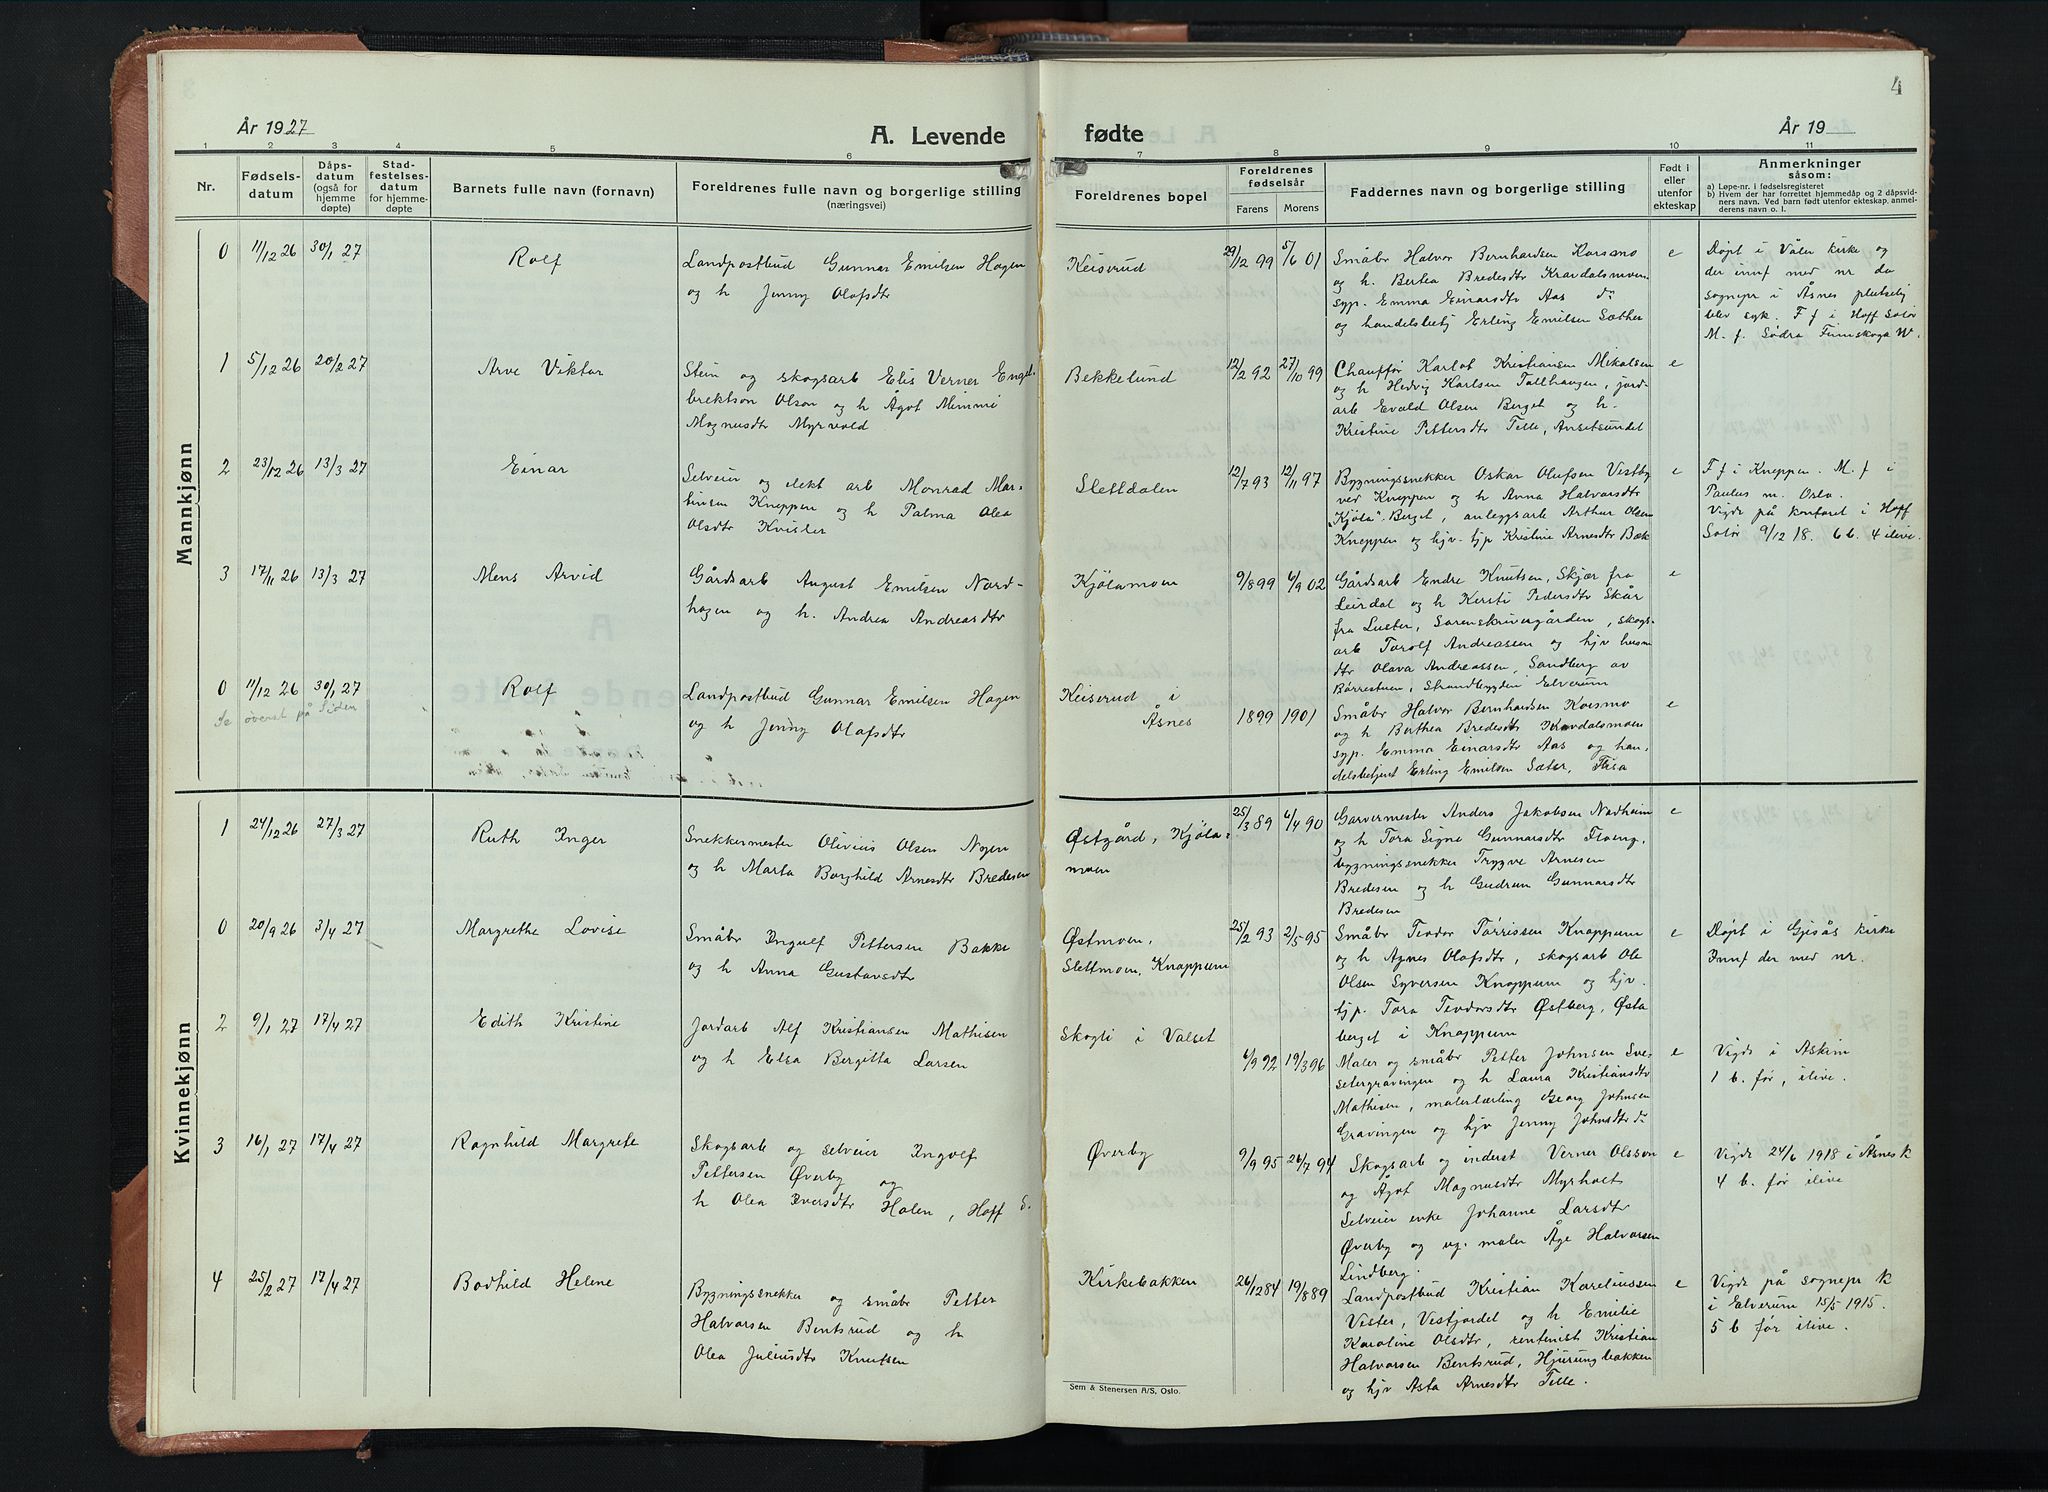 År 1927
A. Levende
fødte
4
År 19
1 2 3 4 5 6 7 8 9 10 11
Nr.
Fødsels-
datum
Dåps-
datum
(også for
hjemme
døpte)
Stad-
festelses-
datum
for hjemme-
døpte
Barnets fulle navn (fornavn)
Foreldrenes fulle navn og borgerlige stilling
(næringsvei)
Foreldrenes bopel
Foreldrenes
fødselsår
Farens Morens
Faddernes navn og borgerlige stilling
Født i
eller
utenfor
ekteskap
Anmerkninger
såsom:
a) Løpe-nr. i fødselsregisteret
b) Hvem der har forrettet hjemmedåp og 2 dåpsvid-
ners navn. Ved barn født utenfor ekteskap. anmel-
derens navn o. l.
Mannkjønn
0 11/12 26 30/1 27 Rolf
Landpostbud Gunnar Emilsen Hagen
og h Jenny Olafsdtr
Keiserud
29/12 99 5/6 01
Småbr Halvor Bernhardsen Korsmo
og h. Bertea Bredesdtr Kravdalsmoen
syp. Emma Einarsdtr Aas do
og handelsbetj Erling Emilsen Sæther
e
Døpt i Våler kirke og
der innf med nr da
sognepr i Åsnes plutselig
blev syk. F f i Hoff Solør
M. f. Södra Finnskoga W.
1 5/12 26 20/2 27 Arve Viktor
Stein og skogsarb Elis Verner Engel-
brektson Olson og h Ågot Mimmi
Magnusdtr Myrvold
Bekkelund
12/2 92 27/10 99
Chauffør Karlot Kristiansen Mikalsen
og h Hedvig Karlsen Tallhaugen, jord-
arb Evald Olsen Berget og h.
Kristine Pettersdtr Telle, Arnetsundet
e
2 23/12 26 13/3 27 Einar
Selveier og elekt arb Monrad Mar-
tinsen Kneppen og h Palma Olea
Olsdtr Kvisler
Slettdalen
12/7 93 12/11 97
Bygningssnekker Oskar Olufsen Vestby
ved Kneppen og h Anna Halvorsdtr
"Kjøla" Berget, anleggsarb Arthur Olsen
Kneppen og hjv. tjp Kristine Arnesdtr Bæk
e
F f i Kneppen. M. f i
Paulus m. Oslo.
Vigde på kontoret i Hoff
Solør 9/12 18. 6 b. 4 ilive.
3 17/11 26 13/3 27 Mens Arvid
Gårdsarb August Emilsen Nord-
hagen og h. Andrea Andreasdtr
Kjølamoen
9/8 99 6/9 02
Gårdsarb Endre Knutsen, Skjær fra
Leirdal og h Kersti Pedersdtr Skår
fra Luster, Sorenskrivergården, skogs-
arb Torolf Andreassen og hjv husm
dtr Olava Andreassen, Sandberg av
Børrestuen, Strandbygden Elverum
e
0 11/12 26 30/1 27 Rolf
Se øverst på Siden
Landpostbud Gunnar Emilsen Hagen
og h Jenny Olafsdtr
Keiserud i
Åsnes
1899 1901
Småbr Halvor Bernhardsen Korsmo
og h Berthea Bredesdtr Kravdalsmoen
syp. Emma Einarsdtr Aas og han-
delsbetjent Erling Emilsen Sæter, Flisa
e
Kvinnekjønn
1 24/12 26 27/3 27 Ruth Inger
Snekkermester Olivius Olsen Nyen
og h Marta Borghild Arnesdtr Bredesen
Østgård, Kjøla-
moen
25/3 89 6/4 90
Garvermester Anders Jakobsen Nadheim
og h Tora Signe Gunnarsdtr Floeng,
bygningssnekker Trygve Arnesen
Bredesen og h Gudrun Gunnarsdtr
Bredesen
e
0 20/9 26 3/4 27 Margrethe Lovise
Småbr Ingulf Pettersen Bakke
og h Anna Gustavsdtr
Østmoen,
Slettmoen, Knappum
25/2 93 2/5 95
Småbr Teodor Tørrissen Knappum
og h Agnes Olafsdtr, skogsarb Ole
Olsen Syversen Knappum og hjv.
tjp. Tora Teodorsdtr Østberg, Østa
berget i Knappum
e
Døpt i Gjesås kirke
Innf der med nr.
2 9/1 27 17/4 27 Edith Kristine
Jordarb Alf Kristiansen Mathisen
og h Elsa Bergitta Larsen
Skogli i Valset
6/9 92 19/3 96
Maler og småbr Petter Johnsen Sve-
setergravingen og h Laura Kristiansdtr
Mathisen, malerlærling Georg Johnsen
Gravingen og hjv Jenny Johnsdtr do
e
Vigde i Askim
1 b. før, ilive.
3 16/1 27 17/4 27 Ragnhild Margrete
Skogsarb og selveier Ingolf
Pettersen Øverby og
h Olea Iversdtr Halen, Hoff S.
Øverby
9/9 95 26/7 94
Skogsarb og inderst Verner Olsson
og Ågot Magnusdtr Myrholt
Selveier enke Johanne Larsdtr
Øverby og ug. maler Åge Halvorsen
Lindberg.
e
Vigde 24/6 1918 i Åsnes k
4 b. før ilive
4 25/2 27 17/4 27 Bodhild Helene
Bygningssnekker og småbr Petter
Halvorsen Bentsrud og h
Olea Juliusdtr Knutsen
Kirkebakken
26/12 84 19/8 89
Landpostbud Kristian Kareliussen
Vester, Vestjordet og h Emilie
Karoline Olsdtr, rentenist Kristian
Halvorsen Bentsrud, Hjurungbakken
og hjv Asta Arnesdtr Telle.
e
Vigde på sognepr k
i Elverum 15/5 1915.
5 b før ilive.
Sem & Stenersen A/S, Oslo.